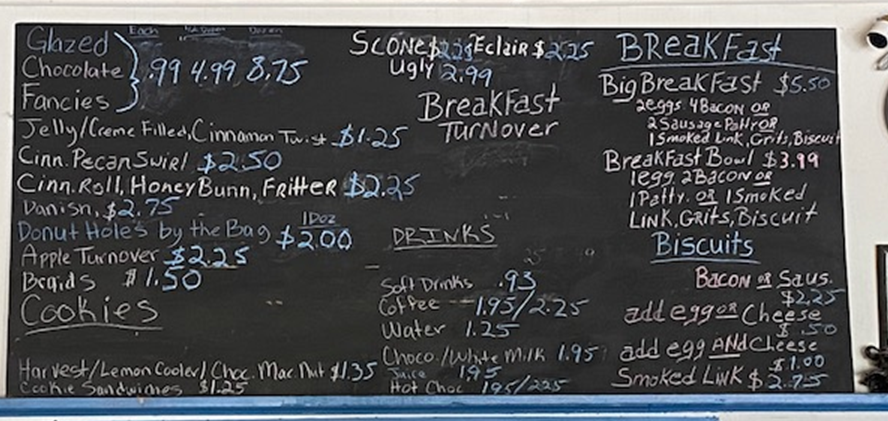 Each
Glazed
Chocolate .99 4.99 8.75
Fancies
Jelly/Creme Filled, Cinnamon Twist $1.25
Cinn. Pecan Swirl $2.50
Cinn. Roll, Honey Bunn, Fritter $2.25
Danish, $2.75
1 Doz
Donut Hole's by the Bag $2.00
Apple Turnover $2.25
Braids $1.50
Cookies
Harvest/Lemon Cooler/Choc. Mac Nut $1.35
Cookie Sandwiches $1.25
Scone $2.25 Eclair $2.25
Ugly 2.99
Breakfast
Turnover
DRINKS
Soft Drinks .93
Coffee 1.95/2.25
Water 1.25
Choco./White Milk 1.95
Juice 1.95
Hot Choc 1.95/2.25
Breakfast
Big Breakfast $5.50
2eggs 4Bacon or
2 Sausage Patty or
1 Smoked Link, Grits, Biscuit
Breakfast Bowl $3.99
1egg 2Bacon or
1 Patty. or 1 Smoked
Link, Grits, Biscuit
Biscuits
Bacon or Saus.
$2.25
add egg or Cheese
$.50
add egg AND Cheese
$1.00
Smoked Link $2.75